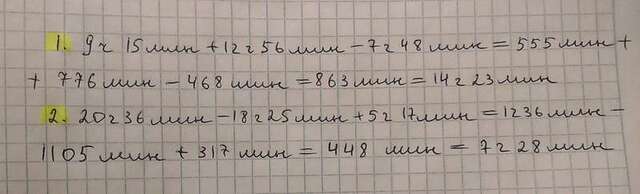 1. 9ч 15мин + 12ч 56мин - 7ч 48мин = 555мин +
+ 776мин - 468мин = 863мин = 14ч 23мин
2. 20ч 36мин - 18ч 25мин + 5ч 17мин = 1236мин -
1105мин + 317мин = 448 мин = 7ч 28мин